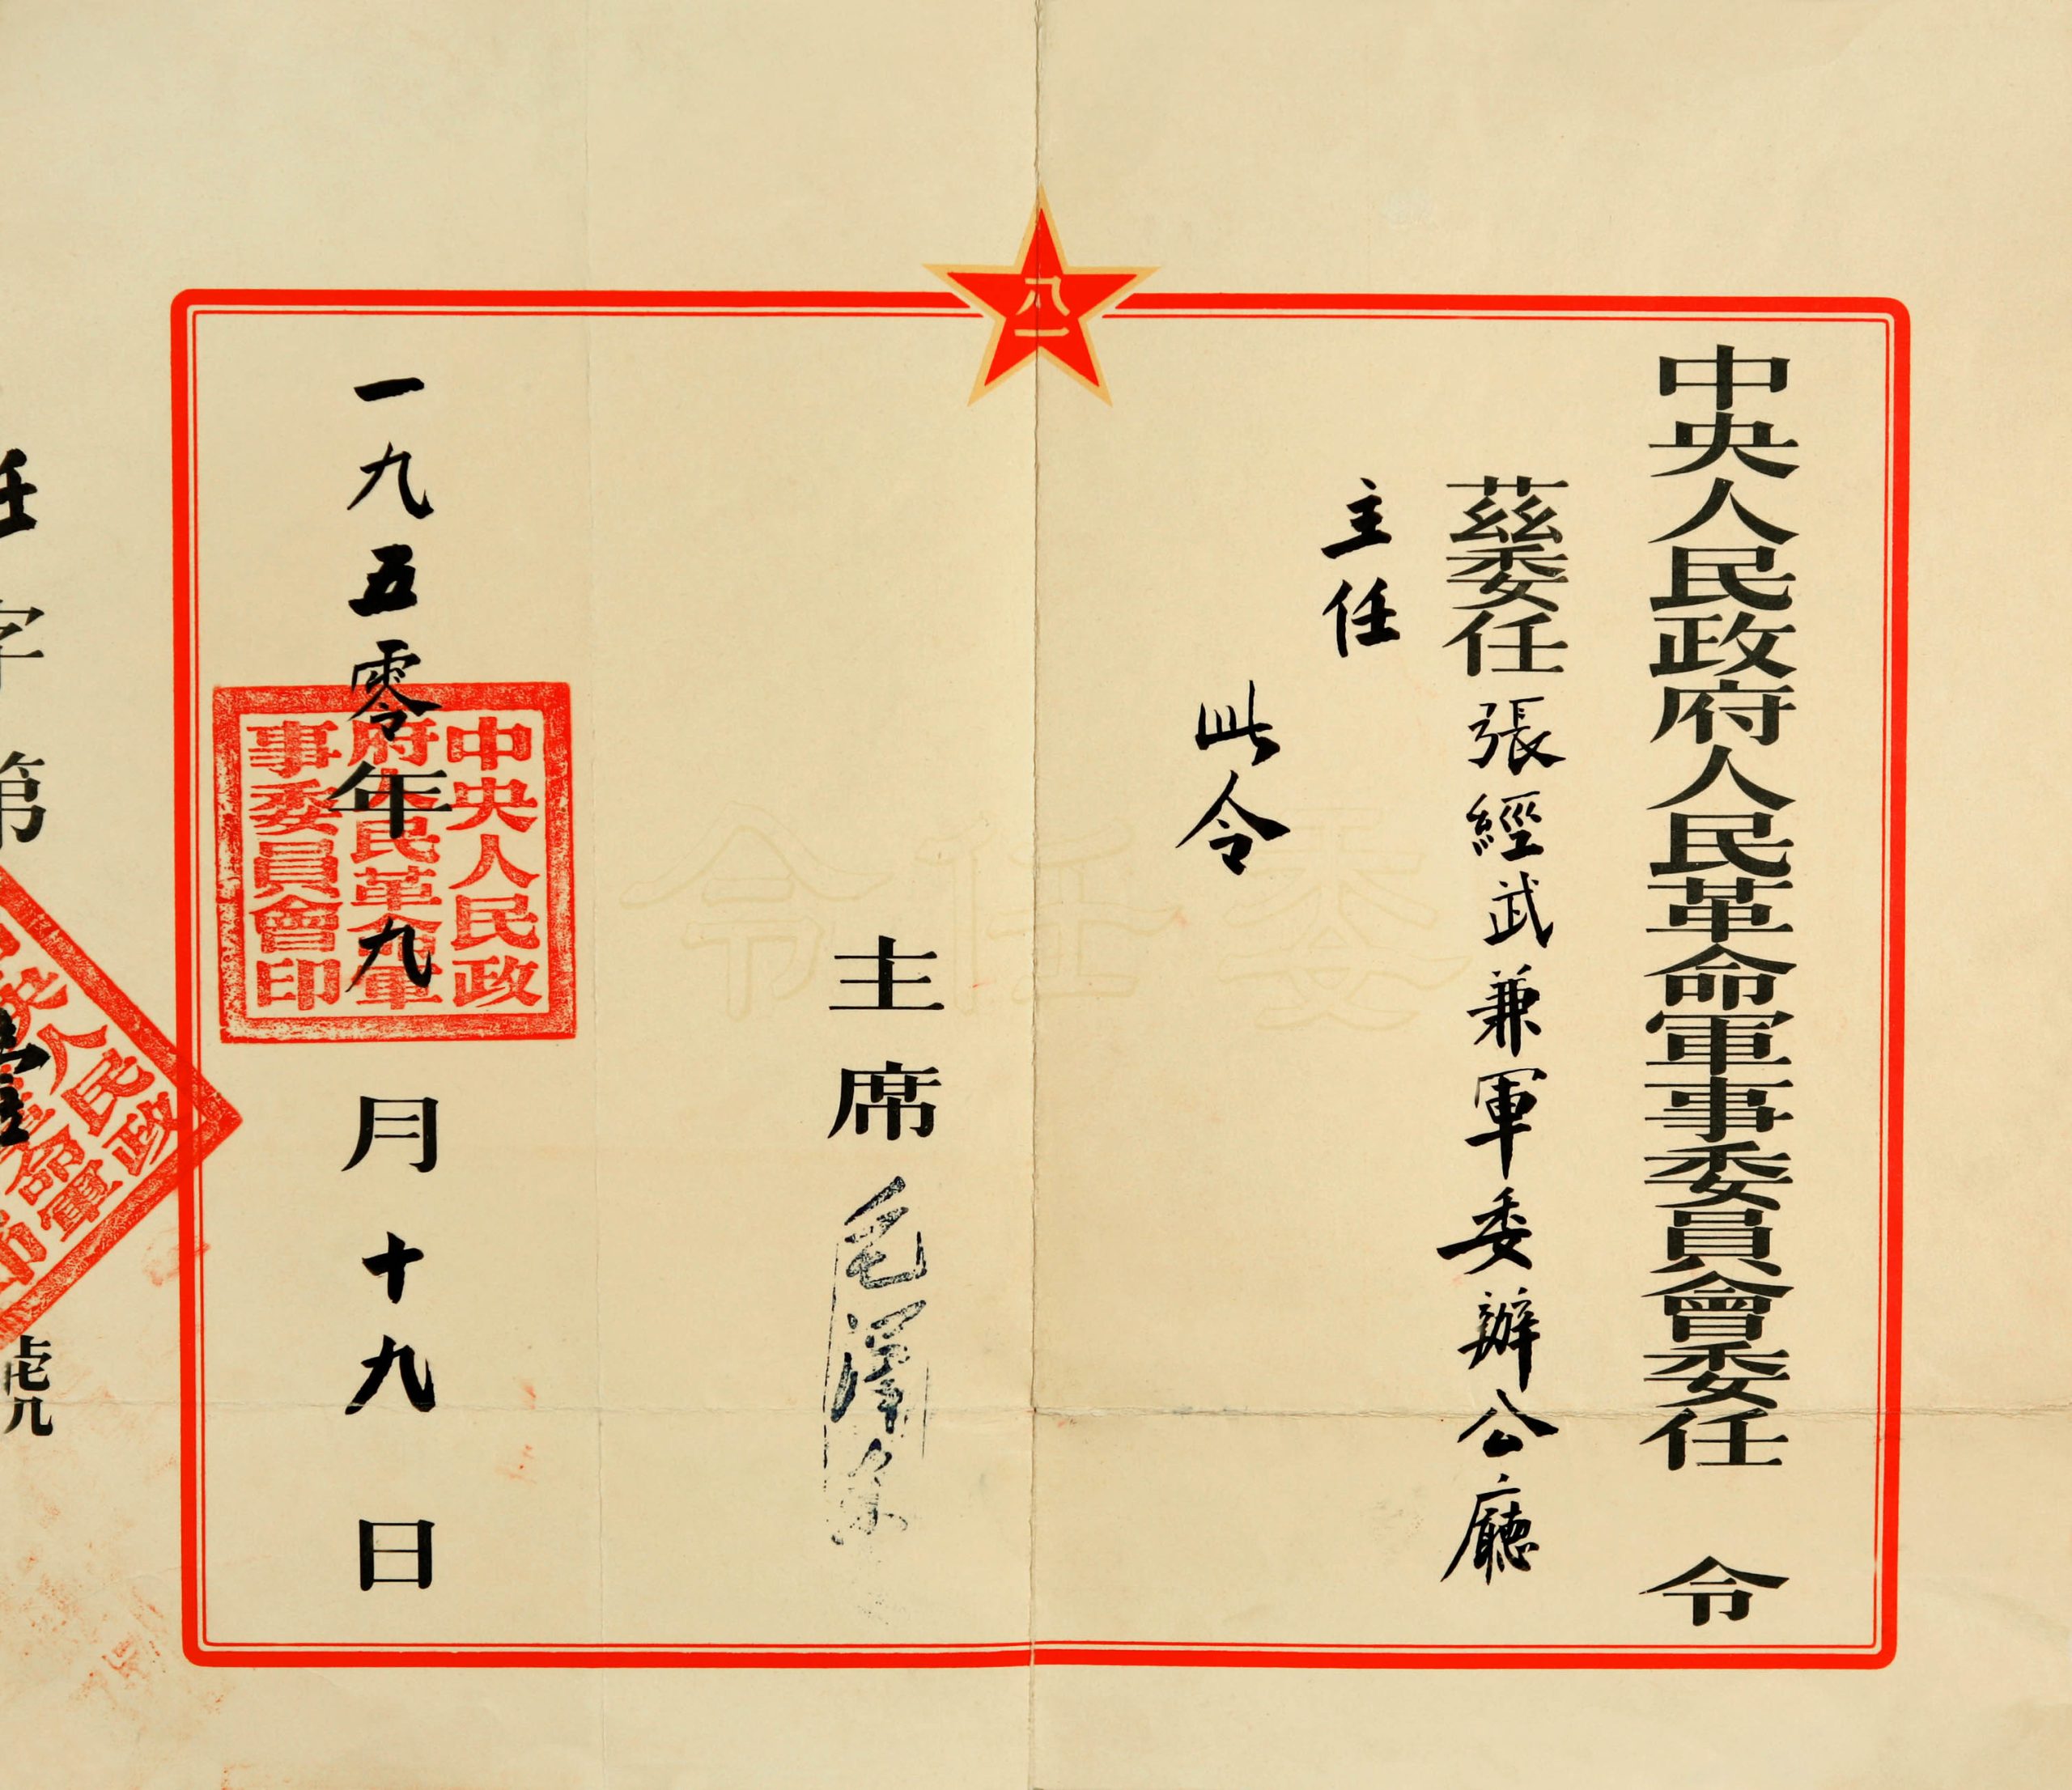 八一
中央人民政府人民革命軍事委員會委任令
茲委任張經武兼軍委辦公廳
主任
此令
委任令
主席毛澤東
一九五零年九月十九日
中央人民政
府人民革命軍
事委員會印
任字第
號